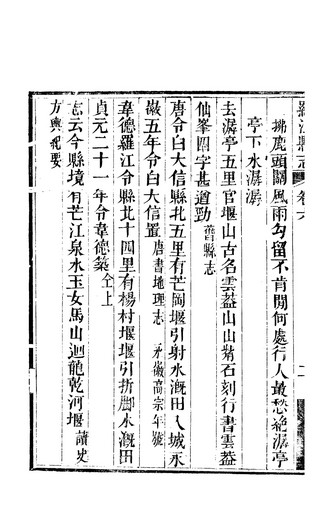 羅江縣志 卷六 二
拂鹿頭關風雨勾留不肯閒何處行人最愁絕潺亭
亭下水潺潺
去潺亭五里官堰山古名雲葢山山崩石刻行書雲葢
仙峯四字甚遒勁 舊縣志
唐令白大信縣北五里有茫岡堰引射水漑田入城永
徽五年令白大信置 唐書地理志 永徽高宗年號
韋德羅江令縣北十四里有楊村堰堰引折脚水漑田
貞元二十一年令韋德築 仝上
志云今縣境有芒江泉水玉女馬山迴龍乾河堰 讀史
方輿紀要